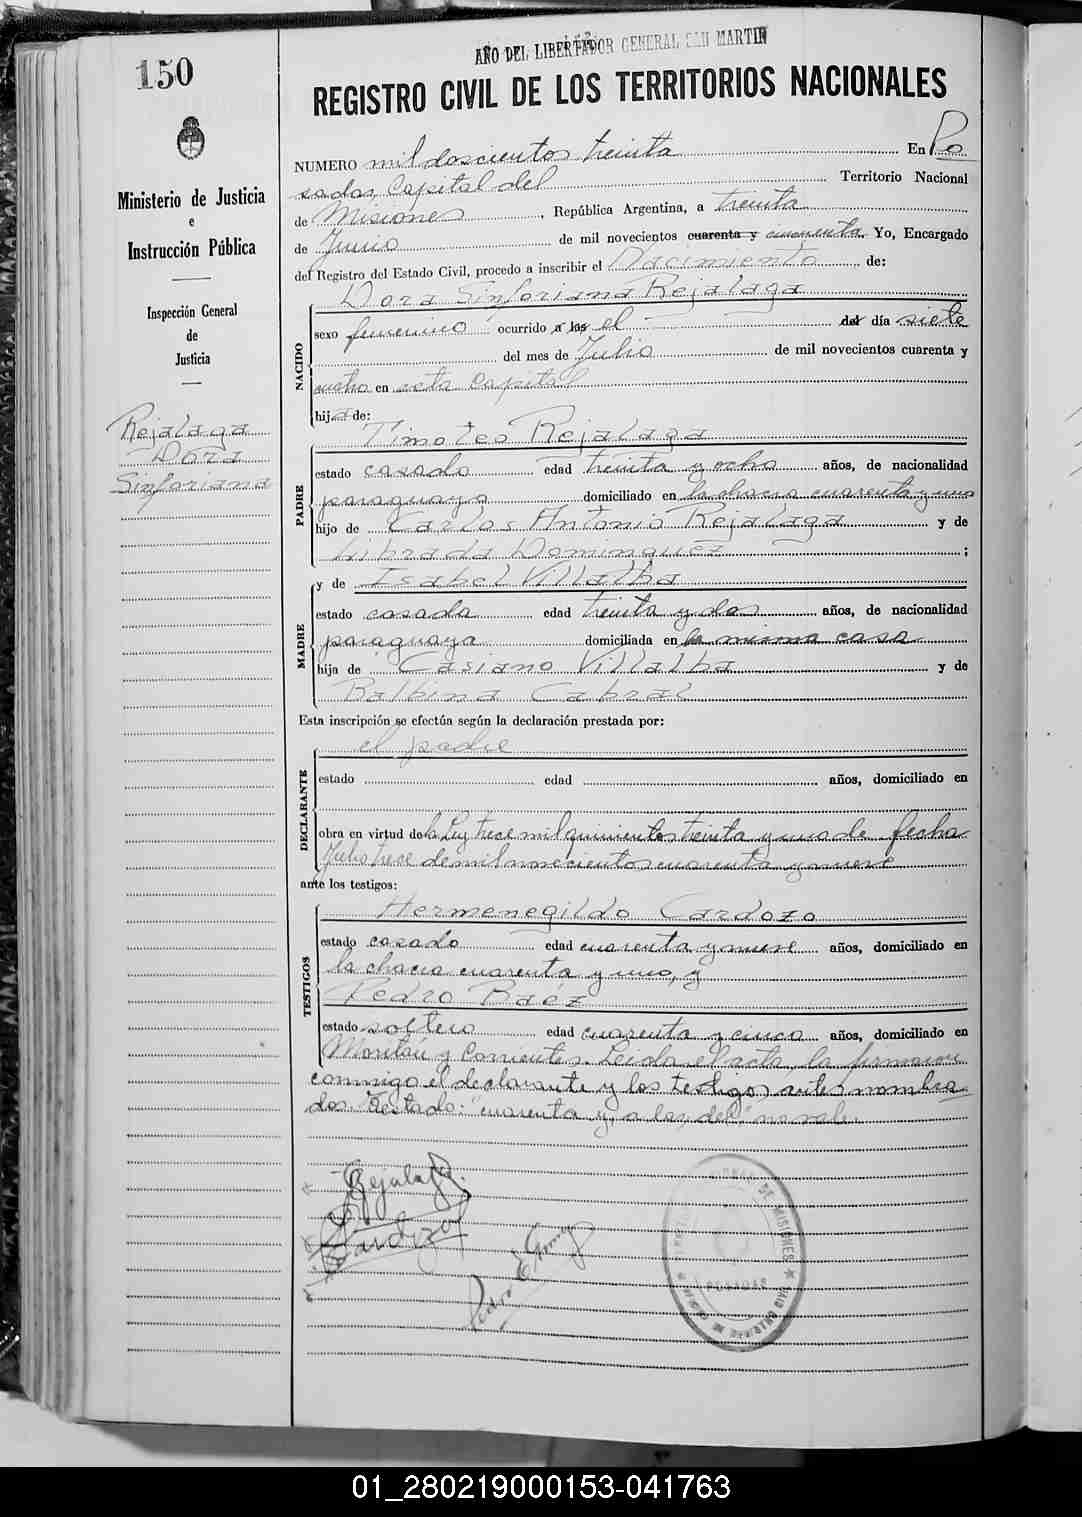 150
AÑO DEL LIBERTADOR GENERAL SAN MARTIN
REGISTRO CIVIL DE LOS TERRITORIOS NACIONALES
Ministerio de Justicia
e
Instrucción Pública
Inspección General
de
Justicia
Rejalaga
Dora
Sinforiana
NUMERO mil doscientos treinta En Po
sadas, Capital del Territorio Nacional
de Misiones, República Argentina, a treinta
de Junio de mil novecientos cuarenta y cincuenta. Yo, Encargado
del Registro del Estado Civil, procedo a inscribir el Nacimiento de:
NACIDO
Dora Sinforiana Rejalaga
sexo femenino ocurrido a las el del día siete
del mes de Julio de mil novecientos cuarenta y
ocho en esta Capital
hija de:
PADRE
Timoteo Rejalaga
estado casado edad treinta y ocho años, de nacionalidad
paraguaya domiciliado en la chacra cuarenta y uno
hijo de Carlos Antonio Rejalaga y de
Librada Dominguez ;
MADRE
y de Isabel Villalba
estado casada edad treinta y dos años, de nacionalidad
paraguaya domiciliada en la misma casa
hija de Casiano Villalba y de
Balbina Cabral
Esta inscripción se efectúa según la declaración prestada por:
DECLARANTE
el padre
estado edad años, domiciliado en
obra en virtud de la Ley trece mil quinientos treinta y uno de fecha
Julio trece de mil novecientos cuarenta y nueve
ante los testigos:
TESTIGOS
Hermenegildo Cardozo
estado casado edad cuarenta y nueve años, domiciliado en
la chacra cuarenta y uno, y
Pedro Baéz
estado soltero edad cuarenta y cinco años, domiciliado en
y Corrientes. Leida el acta, la firmaron
conmigo el declarante y los testigos antes nombra
dos. Testado: "cuarenta y, a las, del", no vale.
Rejalaga
Cardozo
Pedro
E Gomez
DE MISIONES
POSADAS
01_280219000153-041763